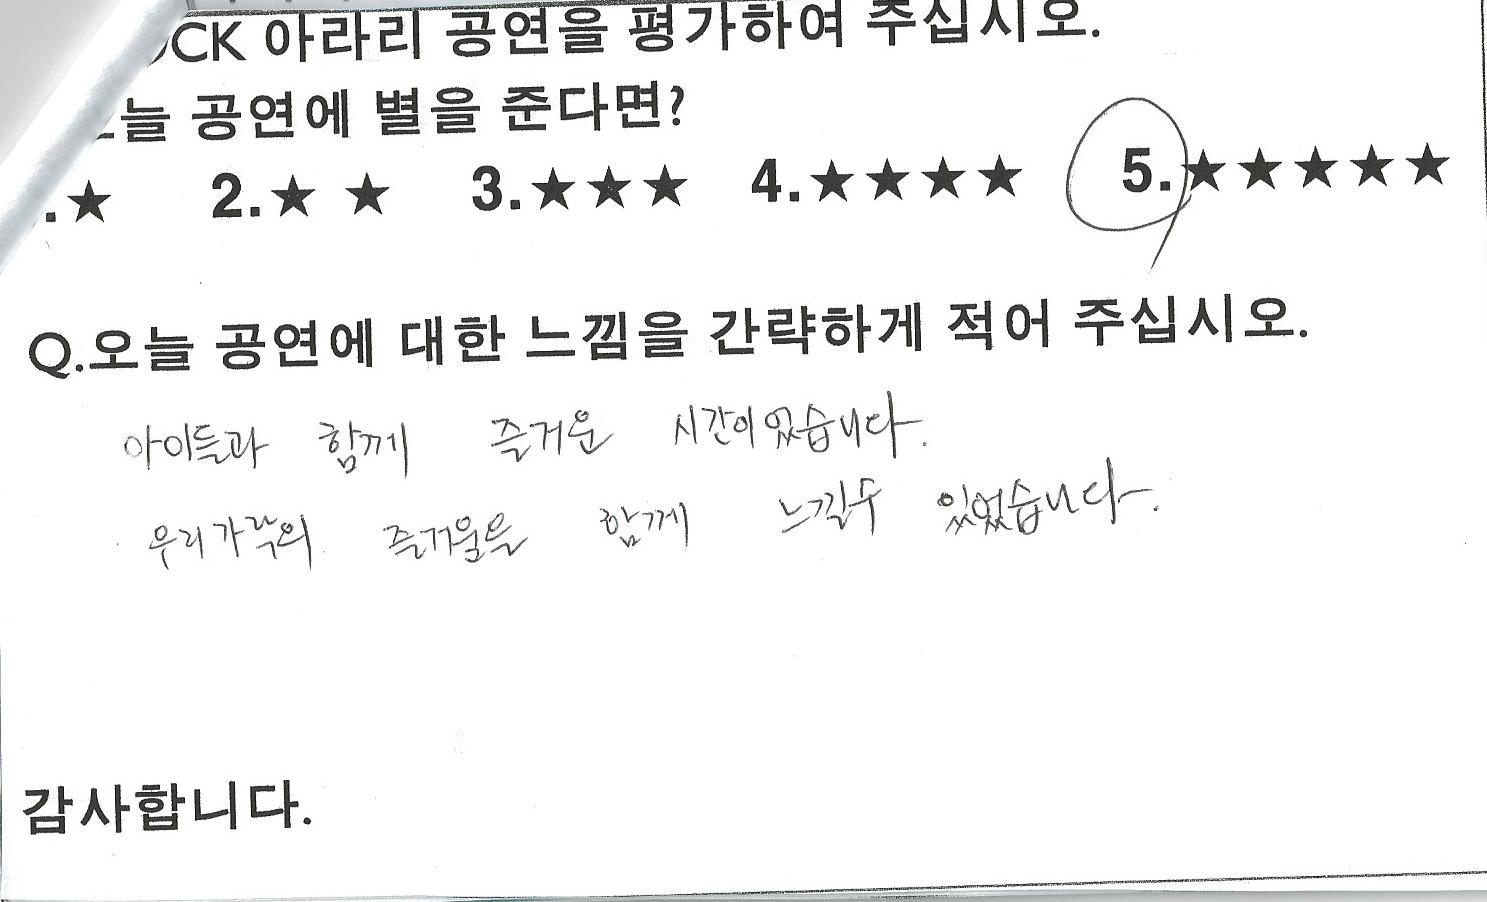 CK 아라리 공연을 평가하여 주십시오.
늘 공연에 별을 준다면?
.★ 2.★ ★ 3.★★★ 4.★★★★ 5.★★★★★
Q.오늘 공연에 대한 느낌을 간략하게 적어 주십시오.
아이들과 함께 즐거운 시간이었습니다.
우리가락의 즐거움을 함께 느낄수 있었습니다.
감사합니다.